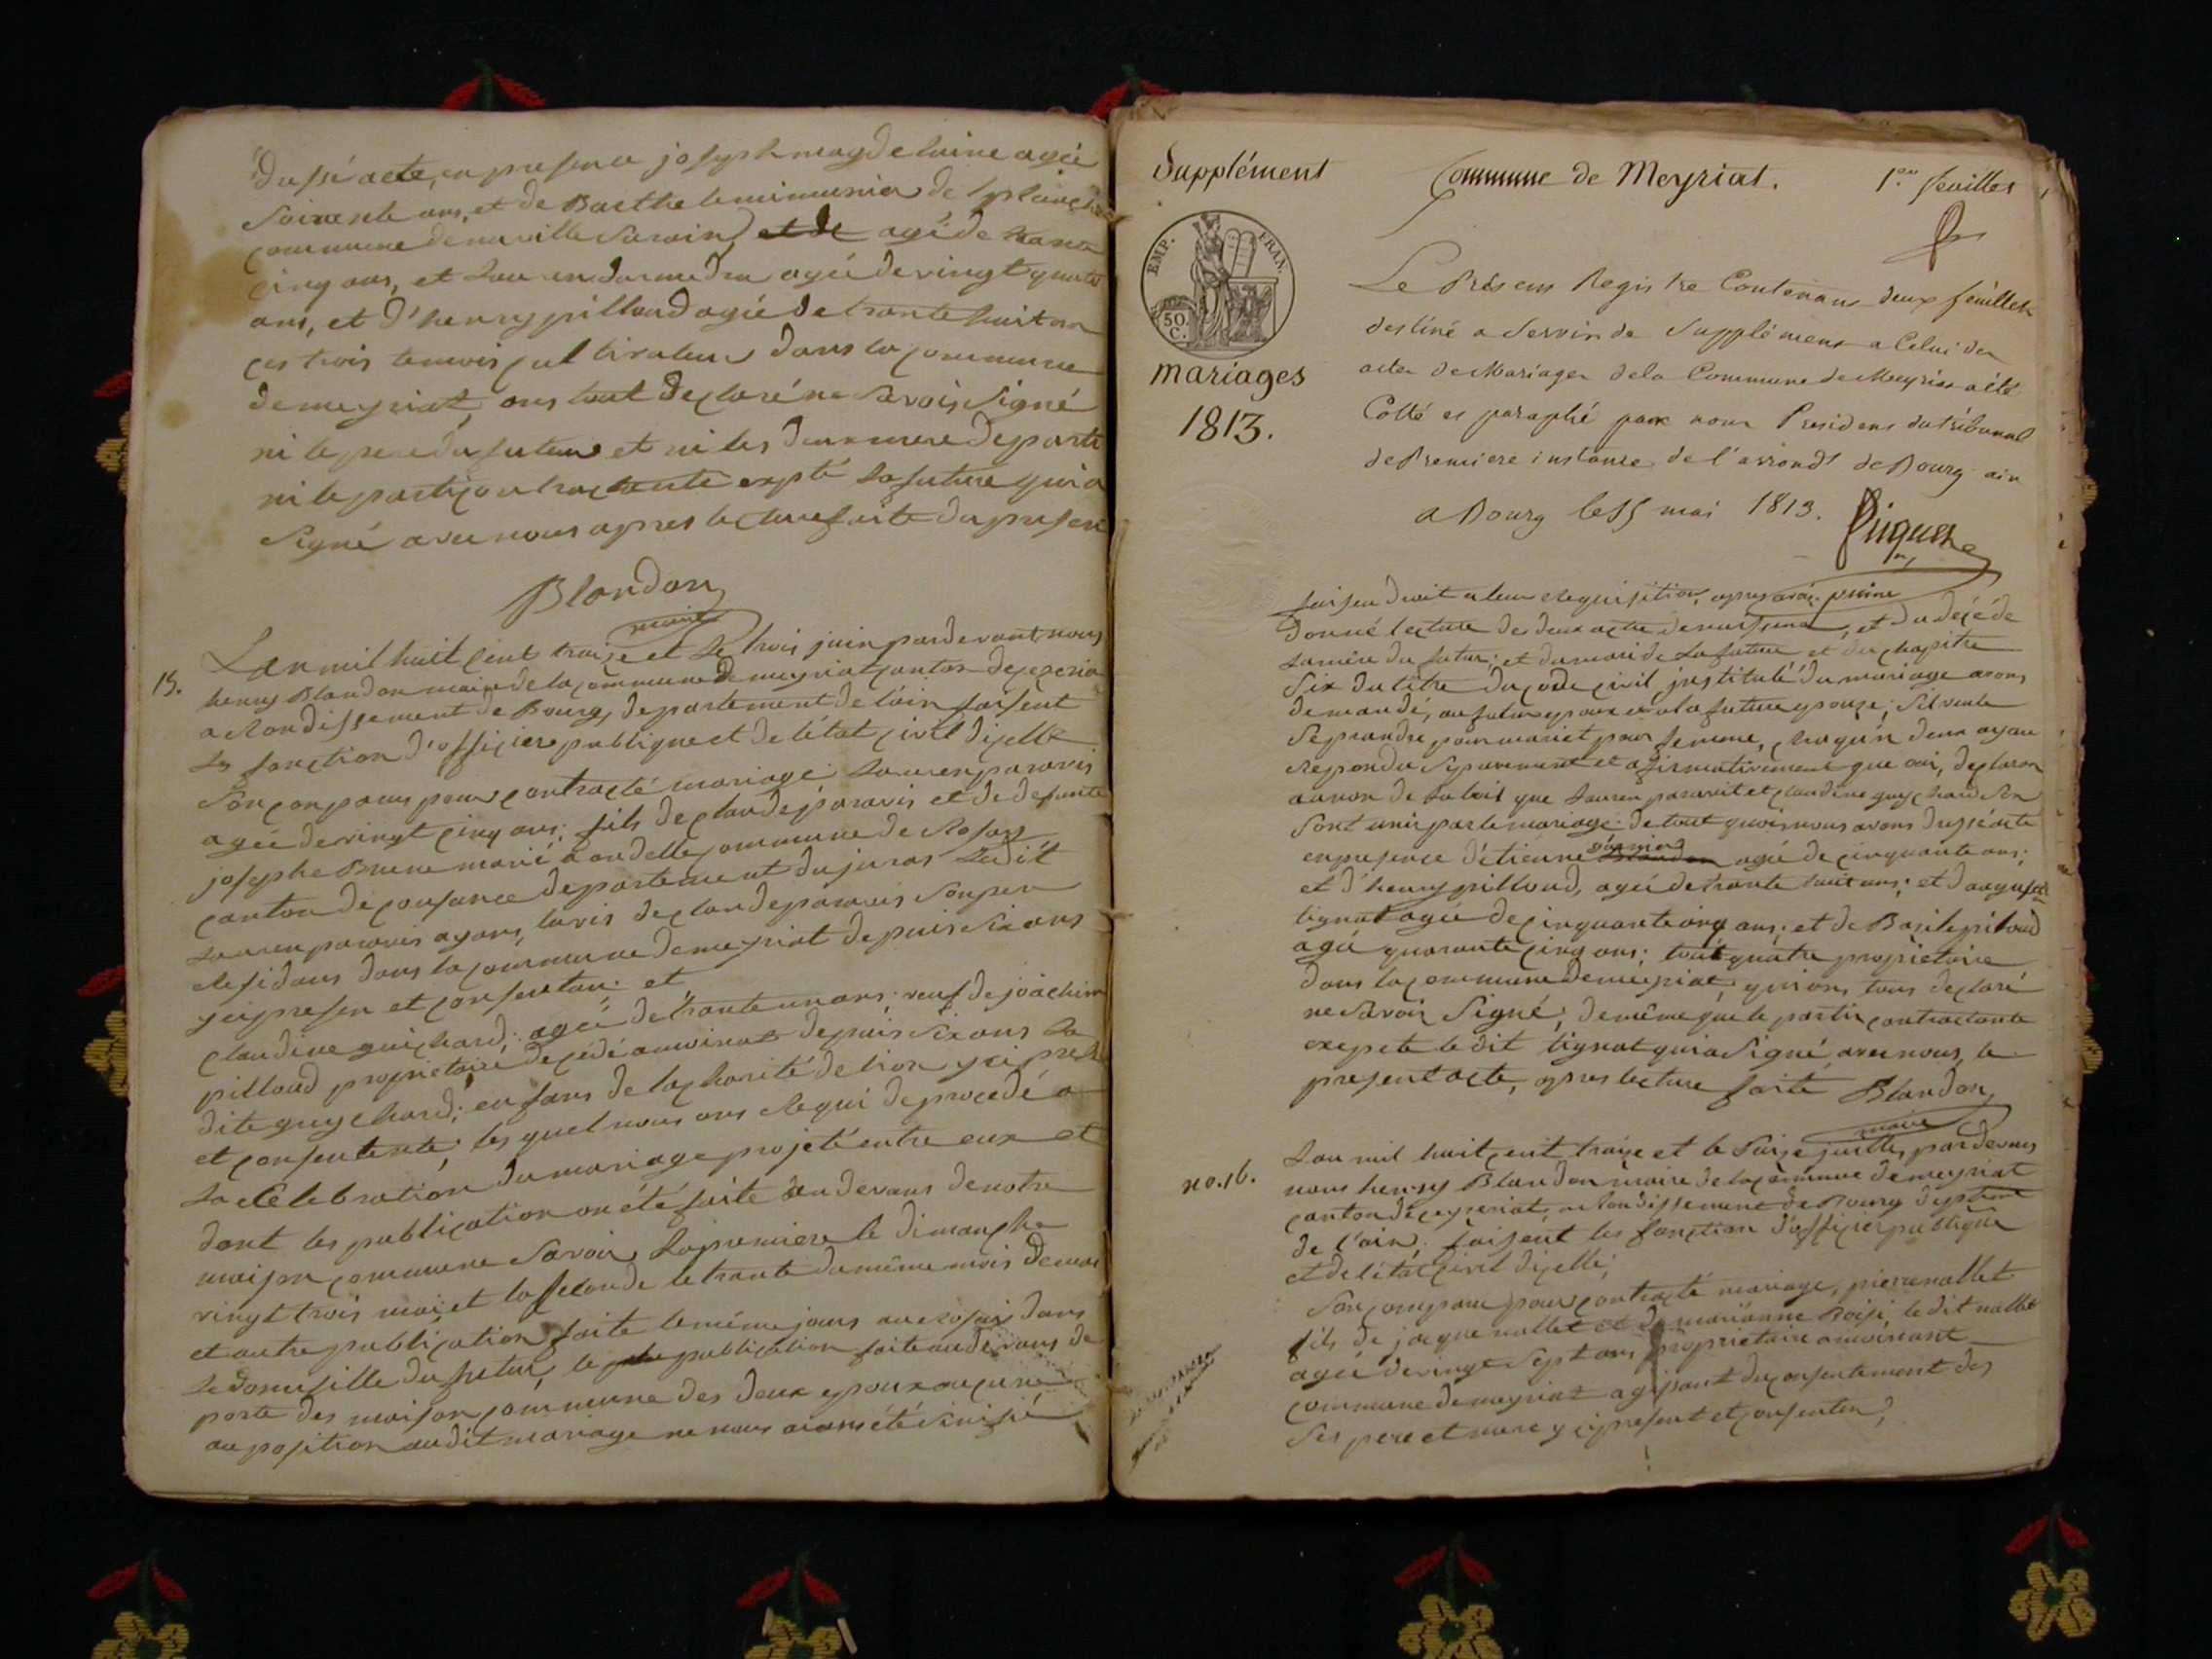 dussé acte, en presence joseph magdelaine agée
Soixente ans, et de Barthelemi munier de
commune de neuville Surain et de agé de trante
cinq ans, et agée de vingt quatre
ans, et d'henry pilloud agée de trante huit an
ces trois temois cultivateur dans la commune
de meyriat, ons tout declaré ne Savois Signé
ni le pere du future et ni les deux mere de parti
ni le parti contractante expté la future qui a
Signé avec nous apres lecture faite du present
Blandon
maire
15.
L'an mil huit cent traize et le trois juin pardevant nous
henry Blandon maire de la commune de meyriat canton de ceyzeria
arondissement de Bourg, departement de l'ain faisent
les fonction d'officier publique et de l'état civil dicelle
Son conparus pour contracté mariage: Lauren paravis
agée de vingt cinq ans; fils de claude paravis et de defunte
josephe Brune marié commune de Rosay
canton de cousance departement du juras Ledit
Lauren paravis ayans lavis de claude paravis Son per
residans dans la commune de meyriat depuis Six ans
yci presen et consentan: et
claudine guichard; agée de trante un ans: veuf de joachim
pilloud proprietaire decédé depuis Six ans La
dite guychard; enfans de la charité de lion yci
et consentente; les quel nous ons requi de procedé a
La célébration du mariage projeté entre eux et
dont les publication on été faite au devans de notre
maison commune Savoir La premiere le dimanche
vingt trois mai et la seconde le trante du même mois de mai
et autre publication faite le même jours au rosay dans
Le domisille du futur, le publication faite au devans de
porte des maison commune des deux epoux aucune
auposition audit mariage ne nous aians été Sinifié
Supplément
Commune de Meyriat.
1.ere feuilles
EMP. FRAN.
50.
C.
mariages
1813.
Le Présent Registre Contenans deux feuilles
destiné a Servir de Supplément a Celui des
actes de Mariages de la Commune de Meyriat a été
Cotté et paraphé par nous Président du tribunal
de Premiere instance de l'arrondt de Bourg ain
a Bourg le 15 mai 1813.
faisen droit a leur requisition, apres avoir
donné lecture des deux actre de naissance, et du decé de
La mère du futur; et du mari de La future et du chapitre
Six du titre du code civil justitulé du mariage avons
demandé, au futur epoux et a la future epouze; Sil veule
Se prandre pour mari et pour femme, chaqu'n deux ayan
repondu Separement et afirmativement que oui, declaron
aunon de La loit que Lauren paravit et claudine guychard Son
Sont unis par le mariage: de tout quoi nous avons dussé acte
en presence d'étienne Blandon agée de cinquante ans;
et d'henry pilloud, agée de trante huit ans; et d'auguste
tignat agée de cinquante cinq ans; et de Basile piloud
agée quarante cinq ans; tout quatre proprietaire
dans la commune de meyriat, qui ons tous declaré
ne Savoir Signé; de même que le partie contractante
exepete le dit tignat qui a Signé avec nous, le
present acte, apres lecture faite Blandon
maire
no. 16.
Lan mil huit cent traize et le Saize juillet, pardevans
nous henry Blandon maire de la commune de meyriat
canton de ceyzeriat, arondissement de Bourg
de l'ain; faisent les fonction d'officier publique
et de l'état civil dicelle;
Son comparu pour contracté mariage, piere nallet
fils de jacque nallet et de marianne Boisi, le dit nallet
agée de vingt Sept ans proprietaire
commune de meyriat agissant du consentement des
Ses pere et mere y ci present et consenten;